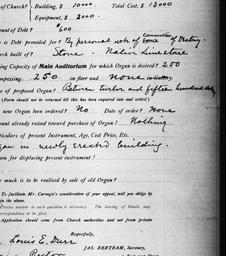 of Church? { Building, $ 10000 Total Cost, $ 13000
Equipment, $ 2000.
ount of Debt? $600
Debt provided for? By personal note of Committee of Vestry.
rch built of? Stone - Native Limestone
ing Capacity of Main Auditorium for which Organ is desired? 250
omprising, 250 on floor and none in Gallery.
e of proposed Organ? Between twelve and fifteen hundred dolls
(Form should not be returned till this has been enquired into and settled.)
new Organ been ordered? No Date of order? None
ount already raised toward purchase of Organ? Nothing
rticulars of present Instrument, Age, Cost Price, Etc.
gan in newly erected building.
son for displacing present instrument?
w much is to be realised by sale of old Organ?
To facilitate Mr. Carnegie's consideration of your appeal, will you oblige by
in the above.
Precise answer to each question is necessary. The leaving of blanks may
correspondence to be filed.
Application should come from Church authorities and not from private
Respectfully,
Louis E. Durr JAS. BERTRAM, Secretary,
Rector